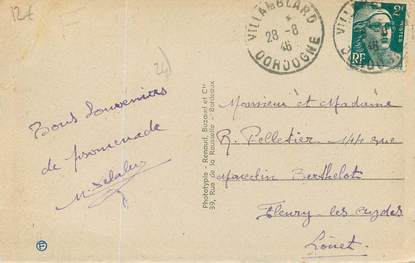 12€
24)
VILLAMBLARD
*
28-8
46
DORDOGNE
VILLA
46
2F
POSTES
RF
Bons Souvenirs
de promenade
Phototypie - Renaud, Buzaud et Cie
39, Rue de la Rousselle - Bordeaux
Monsieur et Madame
R. Pelletier 144 rue
Marcelin Berthelot
Fleury-les-aydes
Loiret